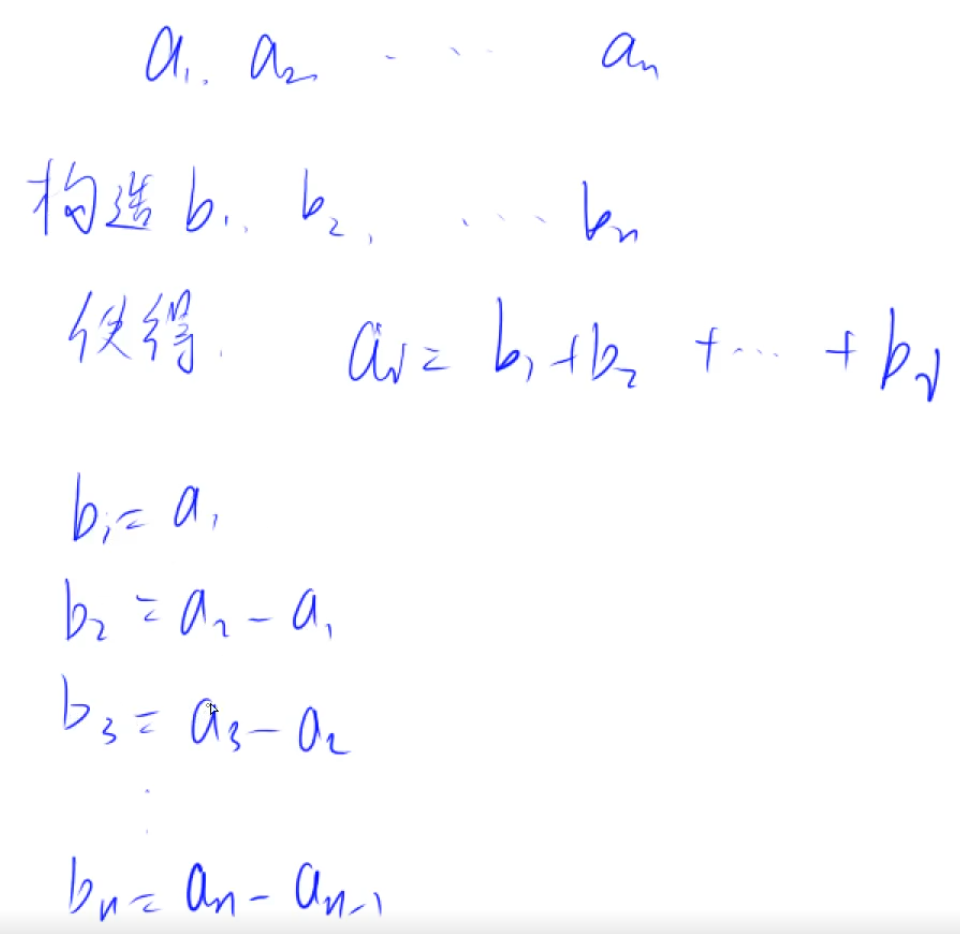 a₁, a₂ ... aₙ
构造 b₁, b₂, ... bₙ
使得. aᵢ = b₁+b₂ +...+ bᵢ
b₁= a₁
b₂ = a₂ - a₁
b₃ = a₃ - a₂
⋮
bₙ = aₙ - aₙ₋₁